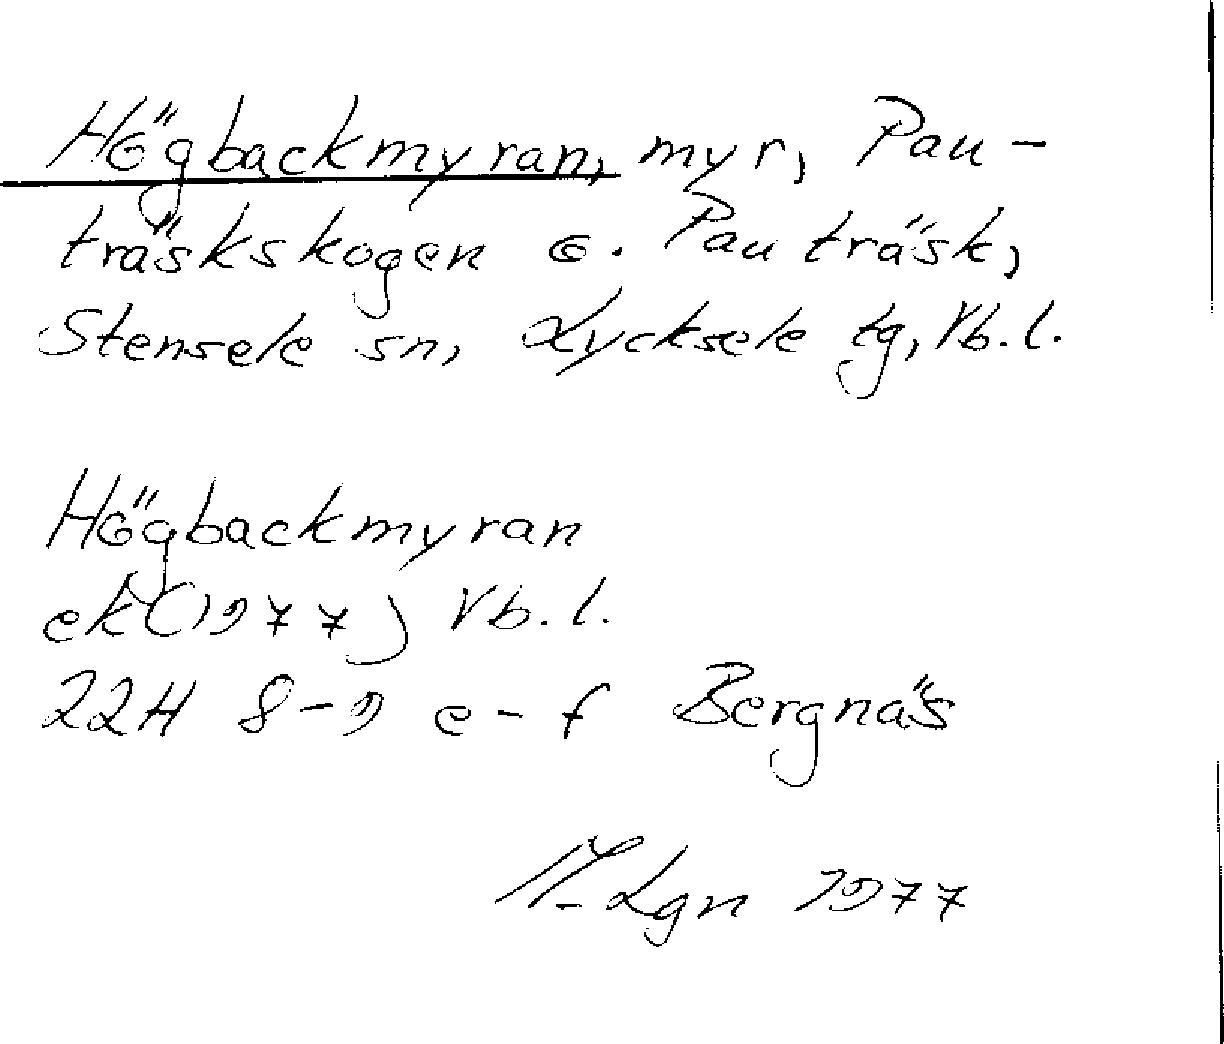 Högbackmyran, myr, Pau-
träskskogen o. Pauträsk,
Stensele sn, Lycksele tg, Vb.l.
Högbackmyran
ek (1977) Vb.l.
22H 8-9 e-f Bergnäs
Lgn 1977